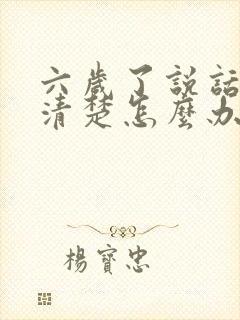 六歲了説話
清楚怎麼办
楊寶忠